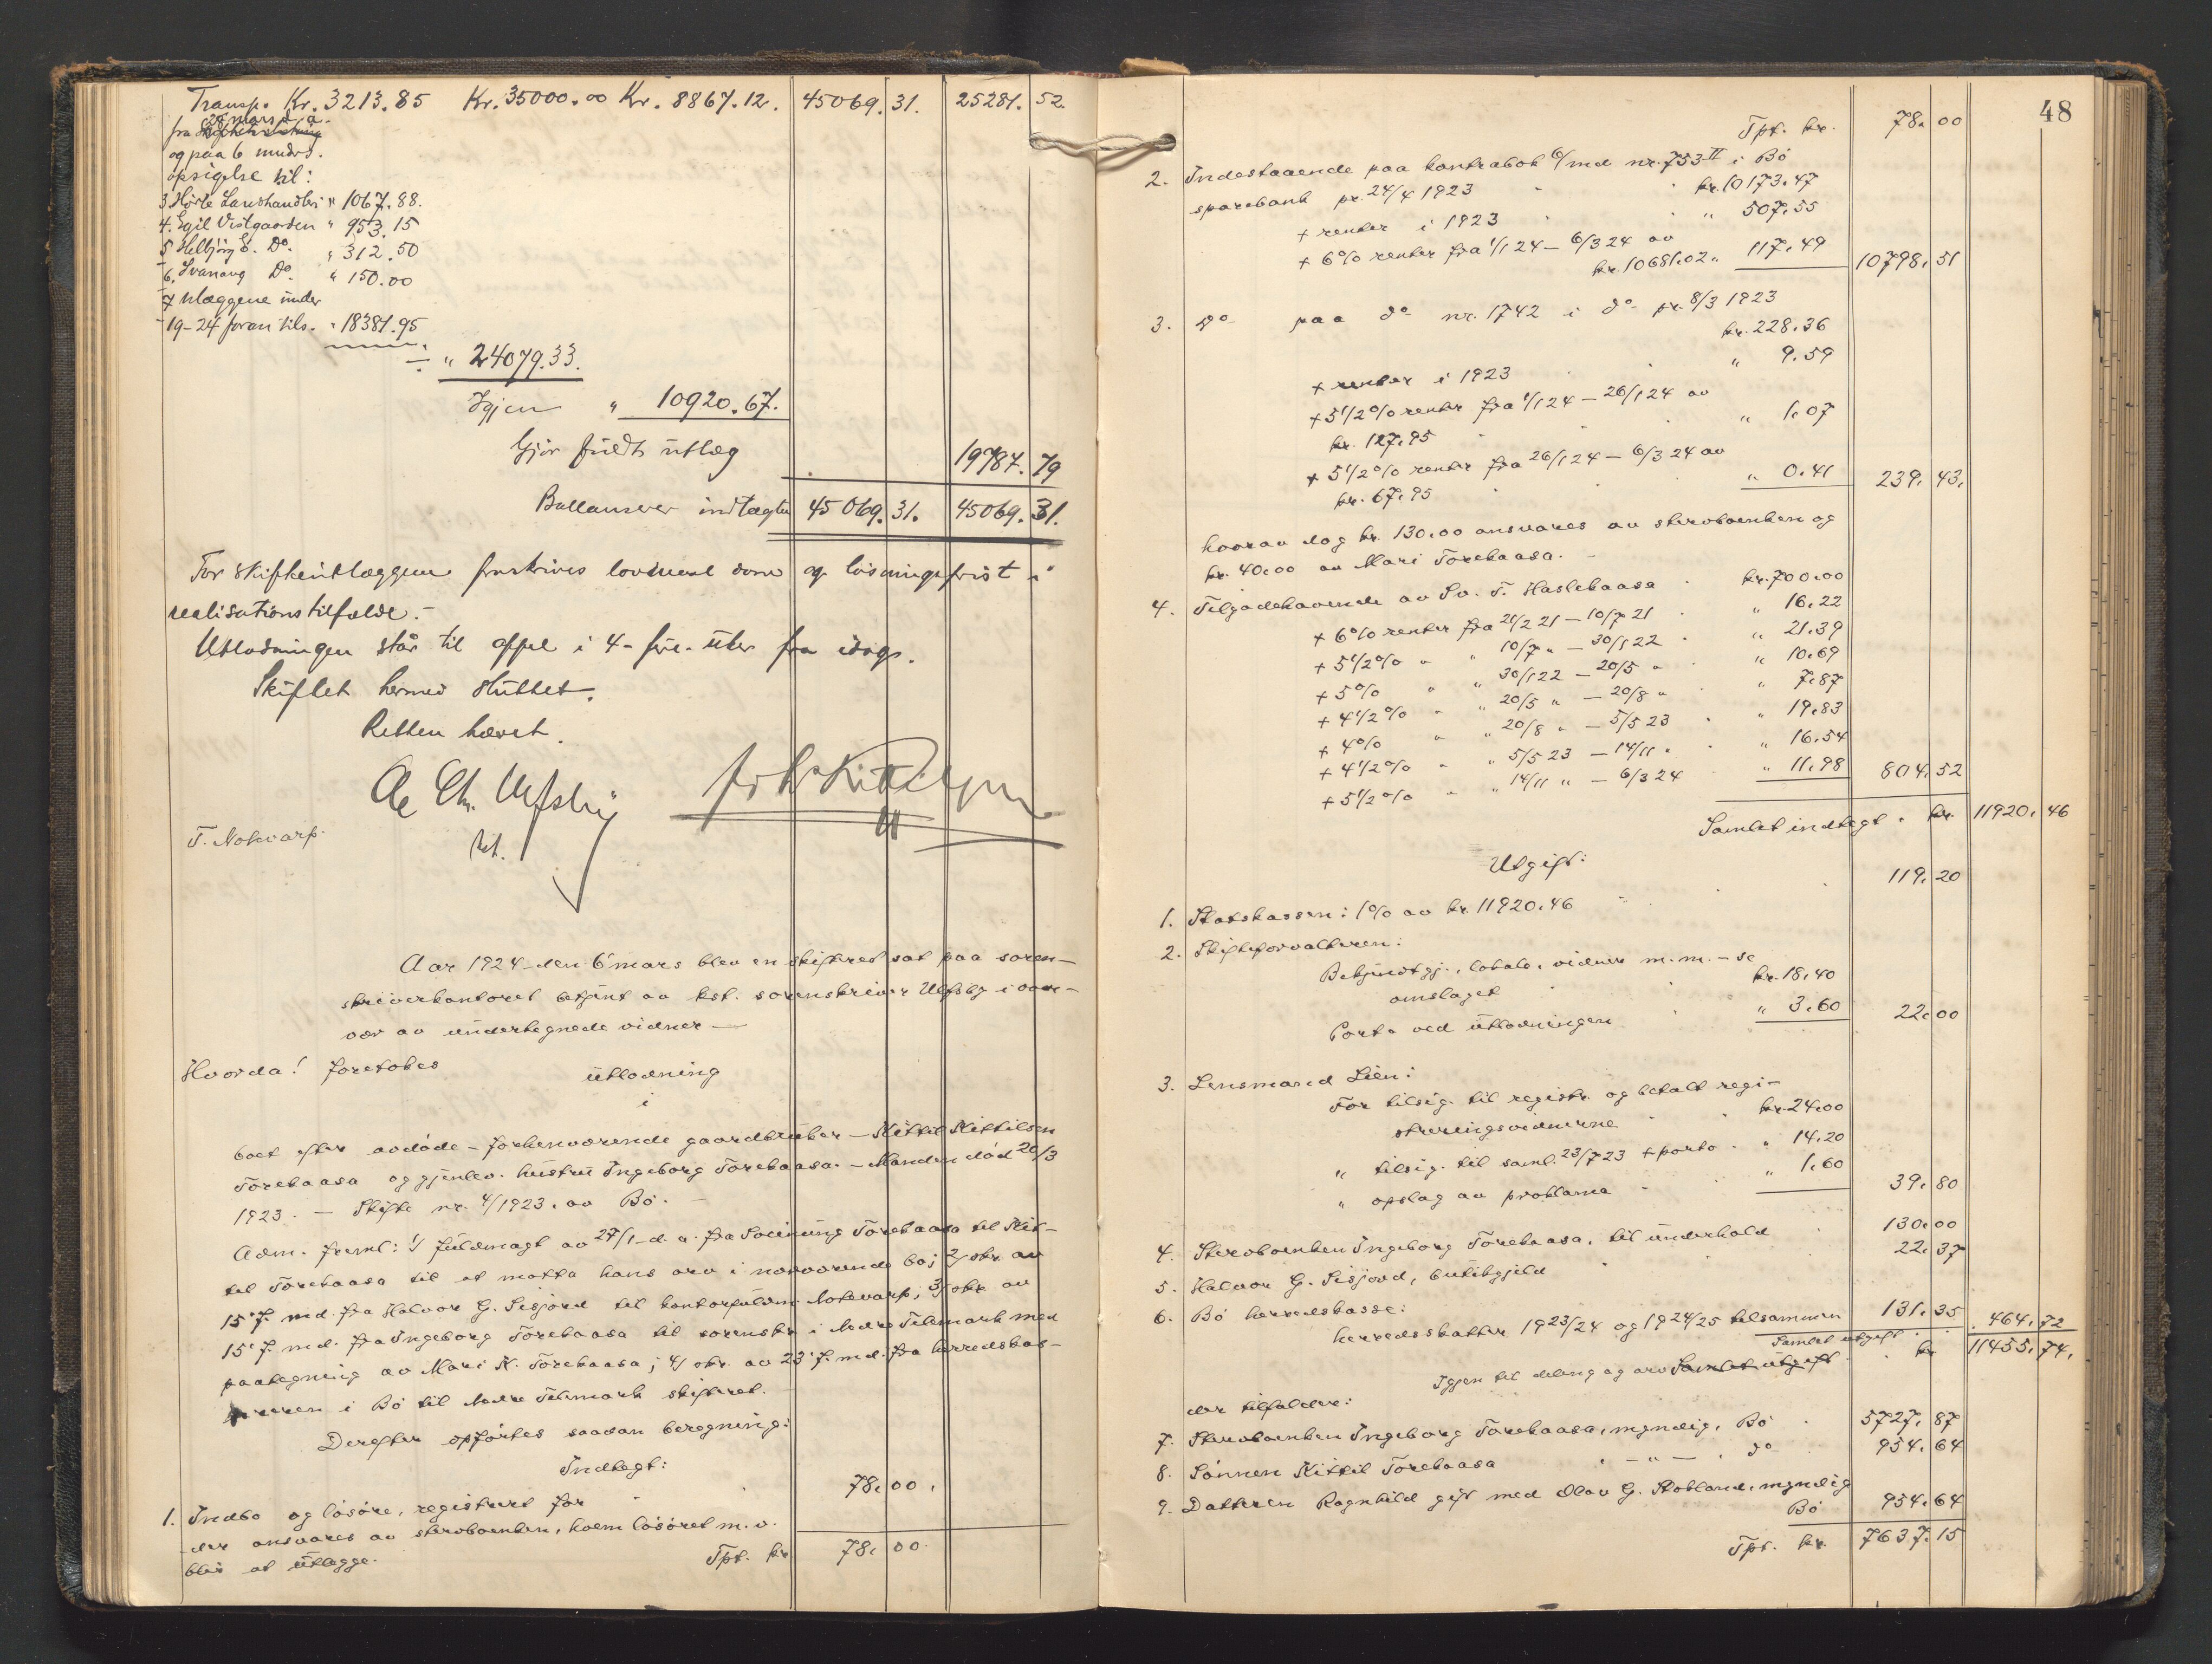 Transp. Kr. 3213.85 Kr. 35000.00 Kr. 8867.12. 45069. 31. 25281. 52.
28 mars d. a.
fra
og paa 6 mndrs.
opsigelse til:
3 Hørte Landhandleri " 1067.88.
4. Egil Vestgaarden " 953.15
5 Helbjørg E. Do. " 312.50
6. Svanaug Do. " 150.00
7 Utlæggene under
19-24 foran tils. " 18381.95
÷ " 24079.33.
Igjen " 10920.67.
Gjør fuldt utlæg 19787. 79
Ballanserer indtægten 45069. 31. 45069. 31.
For skifteutlæggene forskrives lovmessl dom og løsningsfrist i
realisationstilfælde.-
Utlodningen står til appel i 4-fire-uker fra idag.
Skiftet hermed sluttet.
Retten hævet.
T. Notevarp.
Aar 1924 den 6 mars blev en skifteret sat paa soren-
skriverkontoret betjent av kst. sorenskriver Ulfsby i over-
vær av undertegnede vidner-
Hvorda! foretokes
utlodning
i
boet efter avdøde - forhenværende gaardbruker - Kittil Kittilsen
Torebaasa og gjenlev. hustru Ingeborg Torebaasa. - Manden død 20/3
1923. - Skifte nr. 4/1923. av Bø. -
Adm. freml: 1/ fuldmagt av 27/1 d. a. fra Torebaasa til Kit-
tel Torebaasa til at motta hans arv i nærværende bo; 2/ skr. av
15' f. md. fra Halvor G. Sisjord til kontorfuldm. Notevarp; 3/ skr. av
15' f. md. fra Ingeborg Torebaasa til sorenskr. i Nedre Telemark med
paategning av Mari K. Torebaasa; 4/ skr. av 23' f. md. fra herredskas-
sereren i Bø til Nedre Telemark skifteret.
Derefter opførtes saadan beregning:
Indtægt:
1. Indbo og løsøre, registrert for 78. 00.
der ansvares av sterboenken, hvem løsøret m. v.
blir at utlægge. Tpt. kr. 78. 00.
48
Tpt. kr. 78. 00
2. Indestaaende paa kontrabok 6/md nr. 753 II i Bø
sparebank pr. 24/4 1923 kr. 10173.47
+ renter i 1923 " 507.55
+ 6% renter fra 1/1 24 - 6/3 24 av
kr. 10681.02 " 117.49 10798. 51
3. Do paa do nr. 1742 i do pr. 8/3 1923
kr. 228.36
+ renter i 1923 " 9.59
+ 5 1/2% renter fra 1/1 24 - 26/1 24 av
kr. 127.95 " 1.07
+ 5 1/2% renter fra 26/1 24 - 6/3 24 av
kr. 67.95 " 0.41 239. 43.
hvorav dog kr. 130.00 ansvares av sterboenken og
kr. 40.00 av Mari Torebaasa.-
4. Tilgodehavende av Sv. T. Haslebaasa kr. 700.00
+ 6% renter fra 21/2 21 - 10/7 21 " 16.22
+ 5 1/2% " " 10/7 " - 30/1 22 " 21.39
+ 5% " " 30/1 22 - 20/5 " " 10.69
+ 4 1/2% " " 20/5 " - 20/8 " " 7.87
+ 4% " " 20/8 " - 5/5 23 " 19.83
+ 4 1/2% " " 5/5 23 - 14/11 " " 16.54
+ 5 1/2% " " 14/11 " - 6/3 24 " 11.98 804. 52
Samlet indtægt. kr. 11920. 46
Utgift:
1. Statskassen: 1% av kr. 11920.46 119. 20
2. Skifteforvalteren:
Bekjendtgj., lokale, vidner m. m. - se
omslaget kr. 18.40
Porto ved utlodningen " 3.60 22. 00
3. Lensmand Lien:
For tilsig. til registr. og betalt regi-
streringsvidnerne kr. 24.00
" tilsig. til saml. 23/7 23 + porto " 14.20
" opslag av proklama " 1.60 39. 80
4. Sterboenken Ingeborg Torebaasa, til underhold 130.00
5. Halvor G. Sisjord, butikgjeld 22. 37
6. Bø herredskasse:
herredsskatter 1923/24 og 1924/25 tilsammen 131. 35
Samlet utgift 464. 72
Igjen til deling og arv Samlet utgift kr 11455. 74.
der tilfalder:
7. Sterboenken Ingeborg Torebaasa, myndig, Bø 5727. 87
8. Sønnen Kittil Torebaasa - " - do 954. 64
9. Datteren Ragnhild gift med Olav G. Stokland, myndig
Bø 954. 64
Tpt. kr. 7637. 15